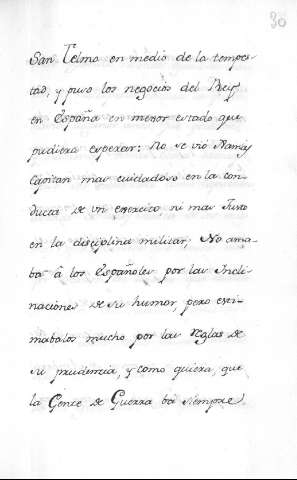 30
San Telmo en medio de la tempes-
tad, y puso los negocios del Rey
en España en menor estado que
pudiera esperar: No se vió Jamas
Capitan mas cuidadoso en la con-
ducta de un exercico, ni mas Justo
en la disciplina militar; No ama-
ba â los Españoles por las Incli-
naciones de su humor, pero esti-
mabalos mucho por las Reglas de
su prudencia, y como quiera, que
la Gente de Guerra ba siempre